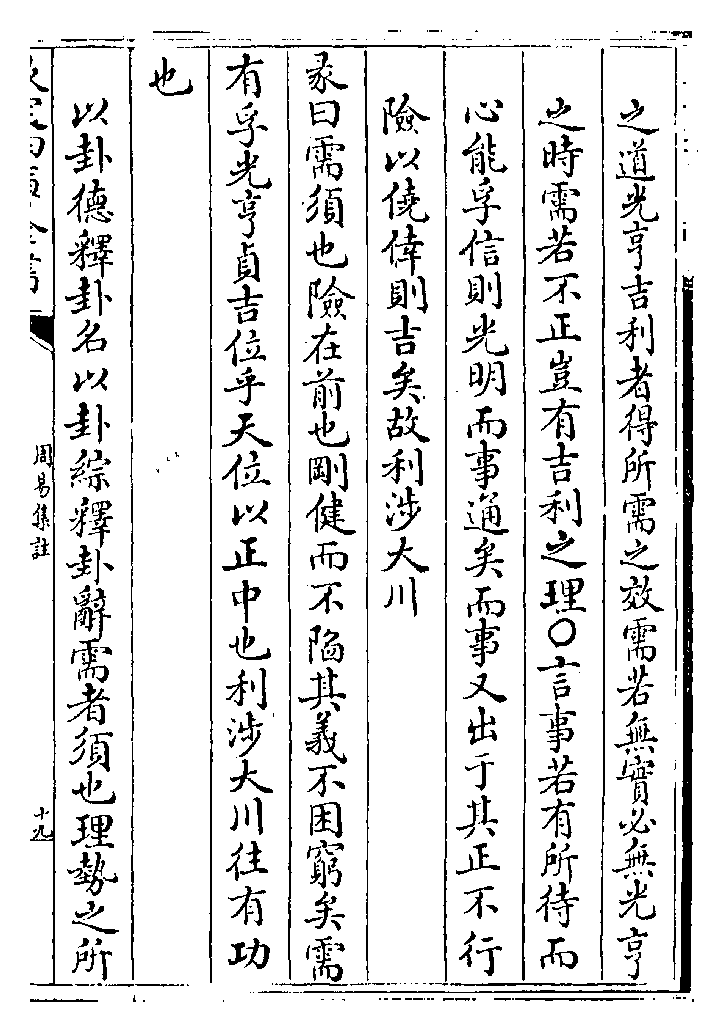 之道光亨吉利者得所需之效需若無實必無光亨
之時需若不正豈有吉利之理○言事若有所待而
心能孚信則光明而事通矣而事又出于其正不行
險以僥倖則吉矣故利涉大川
彖曰需須也險在前也剛健而不陷其義不困窮矣需
有孚光亨貞吉位乎天位以正中也利涉大川往有功
也
以卦德釋卦名以卦綜釋卦辭需者須也理勢之所
周易集註
十九